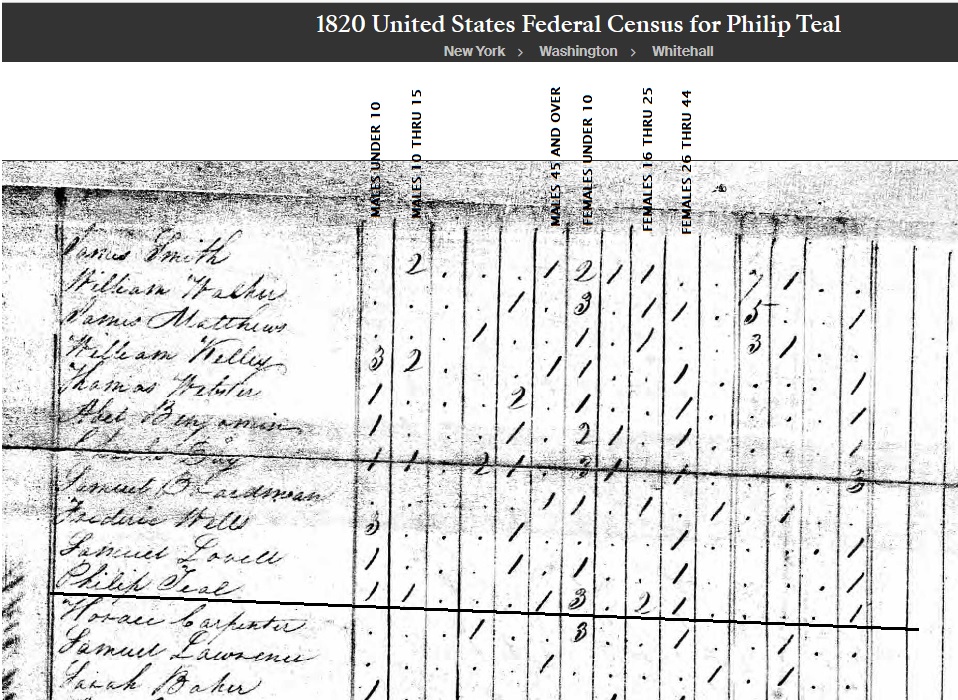 1820 United States Federal Census for Philip Teal
New York > Washington > Whitehall
MALES UNDER 10
MALES 10 THRU 15
MALES 45 AND OVER
FEMALES UNDER 10
FEMALES 16 THRU 25
FEMALES 26 THRU 44
James Smith . 2 . . . 1 2 1 1 . . 7 1 . .
William Walker . . . . 1 . 3 . 1 1 . 5 . . 1
James Matthews . . . 1 . . 1 . 1 . . 3 1 . .
William Kelley 3 2 . . . 1 1 . . 1 . . . . 1
Thomas Webster 1 . . . 2 . 1 . . 1 . . . . 1
Abel Benjamin 1 . . . 1 . 2 1 . 1 . . . . 1
Guy 1 1 . 2 1 . 3 1 . 1 . . . . 3
Samuel Boardman . . . . . 1 1 . 1 . 1 . 1 . .
Frederic Wells 3 . . . 1 . . . . 1 . . . . 1
Samuel Lovell 1 . . . 1 . 1 . . 1 . . . . 1
Philip Teal 1 1 . . . 1 3 . 2 1 . . . . 1
Horace Carpenter . . . 1 . . 3 . . 1 . . 1 . .
Samuel Lawrence . . . . . 1 . . . . 1 . 1 . .
Sarah Baker 1